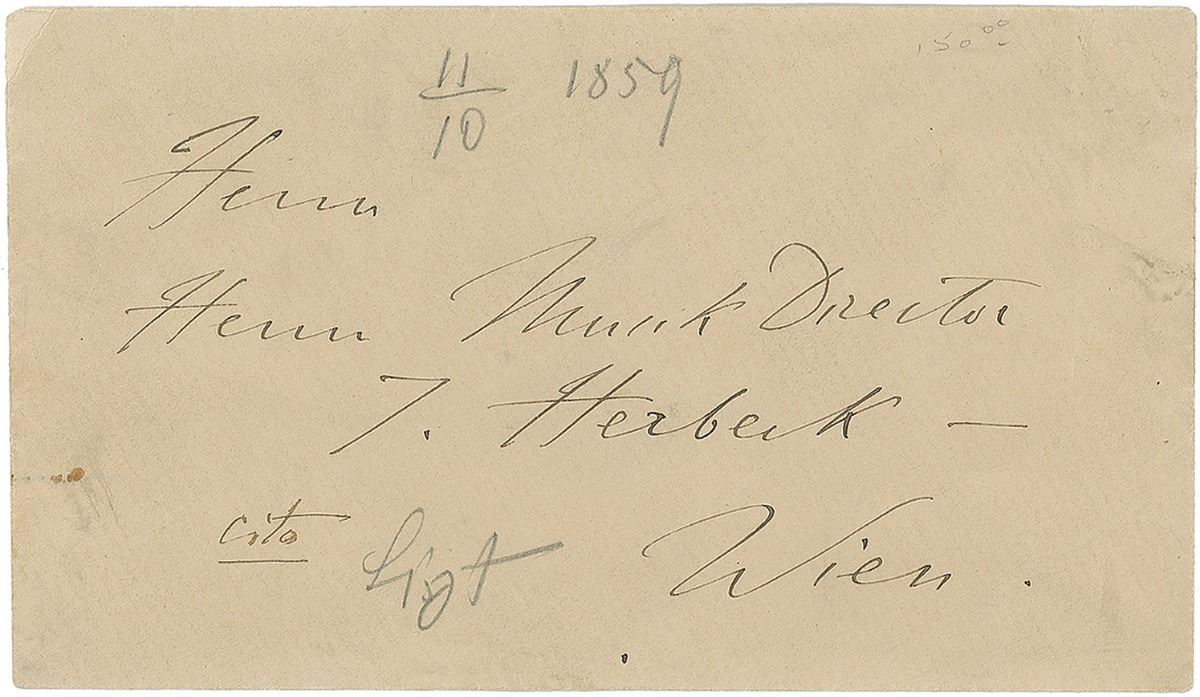 150.00
11/10 1859
Herrn
Herrn Musik Director
J. Herbeck —
cito Liszt Wien.